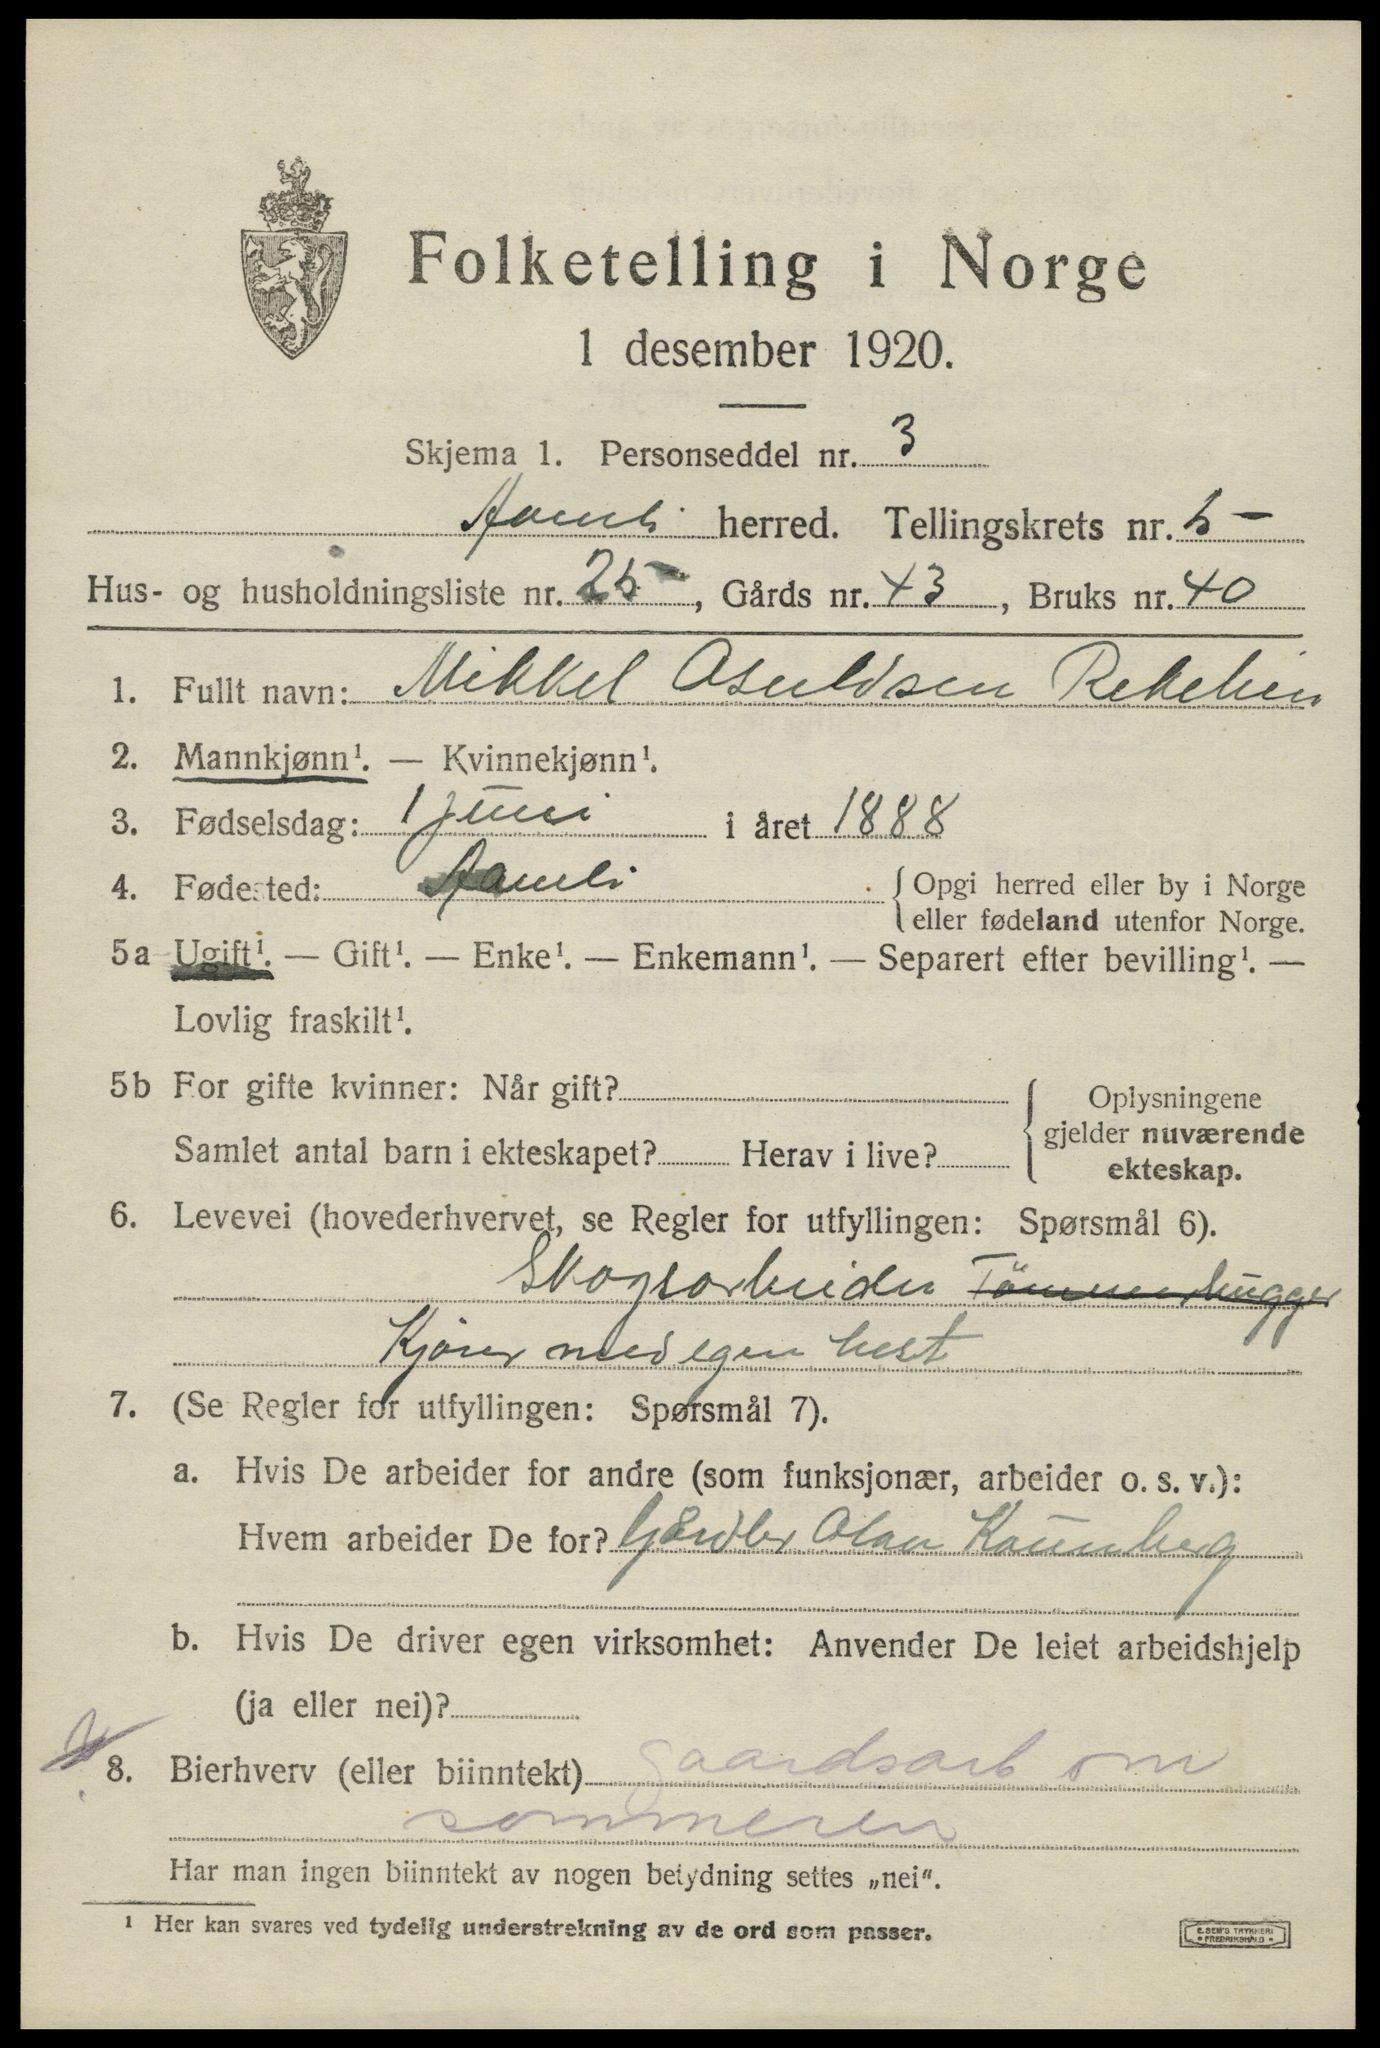 Folketelling i Norge
1 desember 1920.
Skjema 1. Personseddel nr. 3
Aamli herred. Tellingskrets nr. 5
Hus- og husholdningsliste nr. 25, Gårds nr. 43, Bruks nr. 40
1. Fullt navn: Mikkel Osuldsen
2. Mannkjønn¹. — Kvinnekjønn¹.
3. Fødselsdag: 1 juni i året 1888
4. Fødested: Aamli { Opgi herred eller by i Norge
eller fødeland utenfor Norge.
5a Ugift¹. — Gift¹. — Enke¹. — Enkemann¹. — Separert efter bevilling¹. —
Lovlig fraskilt¹.
5b For gifte kvinner: Når gift? { Oplysningene
gjelder nuværende
ekteskap.
Samlet antal barn i ekteskapet? Herav i live?
6. Levevei (hovederhvervet, se Regler for utfyllingen: Spørsmål 6).
Skogsarbeider Tömmerhugger
Kjører med egen hest
7. (Se Regler for utfyllingen: Spørsmål 7).
a. Hvis De arbeider for andre (som funksjonær, arbeider o. s. v.):
Hvem arbeider De for? Olav
b. Hvis De driver egen virksomhet: Anvender De leiet arbeidshjelp
(ja eller nei)?
8. Bierhverv (eller biinntekt) gaardsarb om
sommeren
Har man ingen biinntekt av nogen betydning settes „nei“.
¹ Her kan svares ved tydelig understrekning av de ord som passer.
E. SEM'S TRYKKERI
FREDRIKSHALD